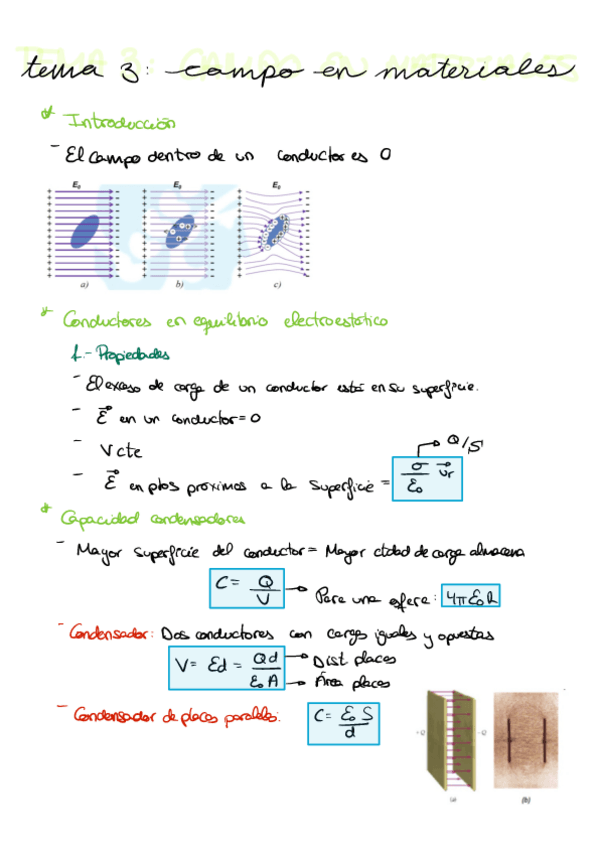 tema 3: campo en materiales
* Introducción
- El campo dentro de un conductor es 0
E₀ E₀ E₀
a) b) c)
* Conductores en equilibrio electroestático
1.- Propiedades
- El exceso de carga de un conductor está en su superficie.
- E⃗ en un conductor = 0
- V cte
→ Q/S
- E⃗ en ptos próximos a la superficie = σ/ε₀ u⃗r
* Capacidad condensadores
- Mayor superficie del conductor = Mayor ctdad de carga almacena
C = Q/V → Para una esfera: 4πε₀R
- Condensador: Dos conductores con carga iguales y opuestas
V = Ed = Qd/ε₀A → Dist placas
→ Área placas
- Condensador de placas paralelas: C = ε₀S/d
+Q -Q +Q -Q
(a) (b)